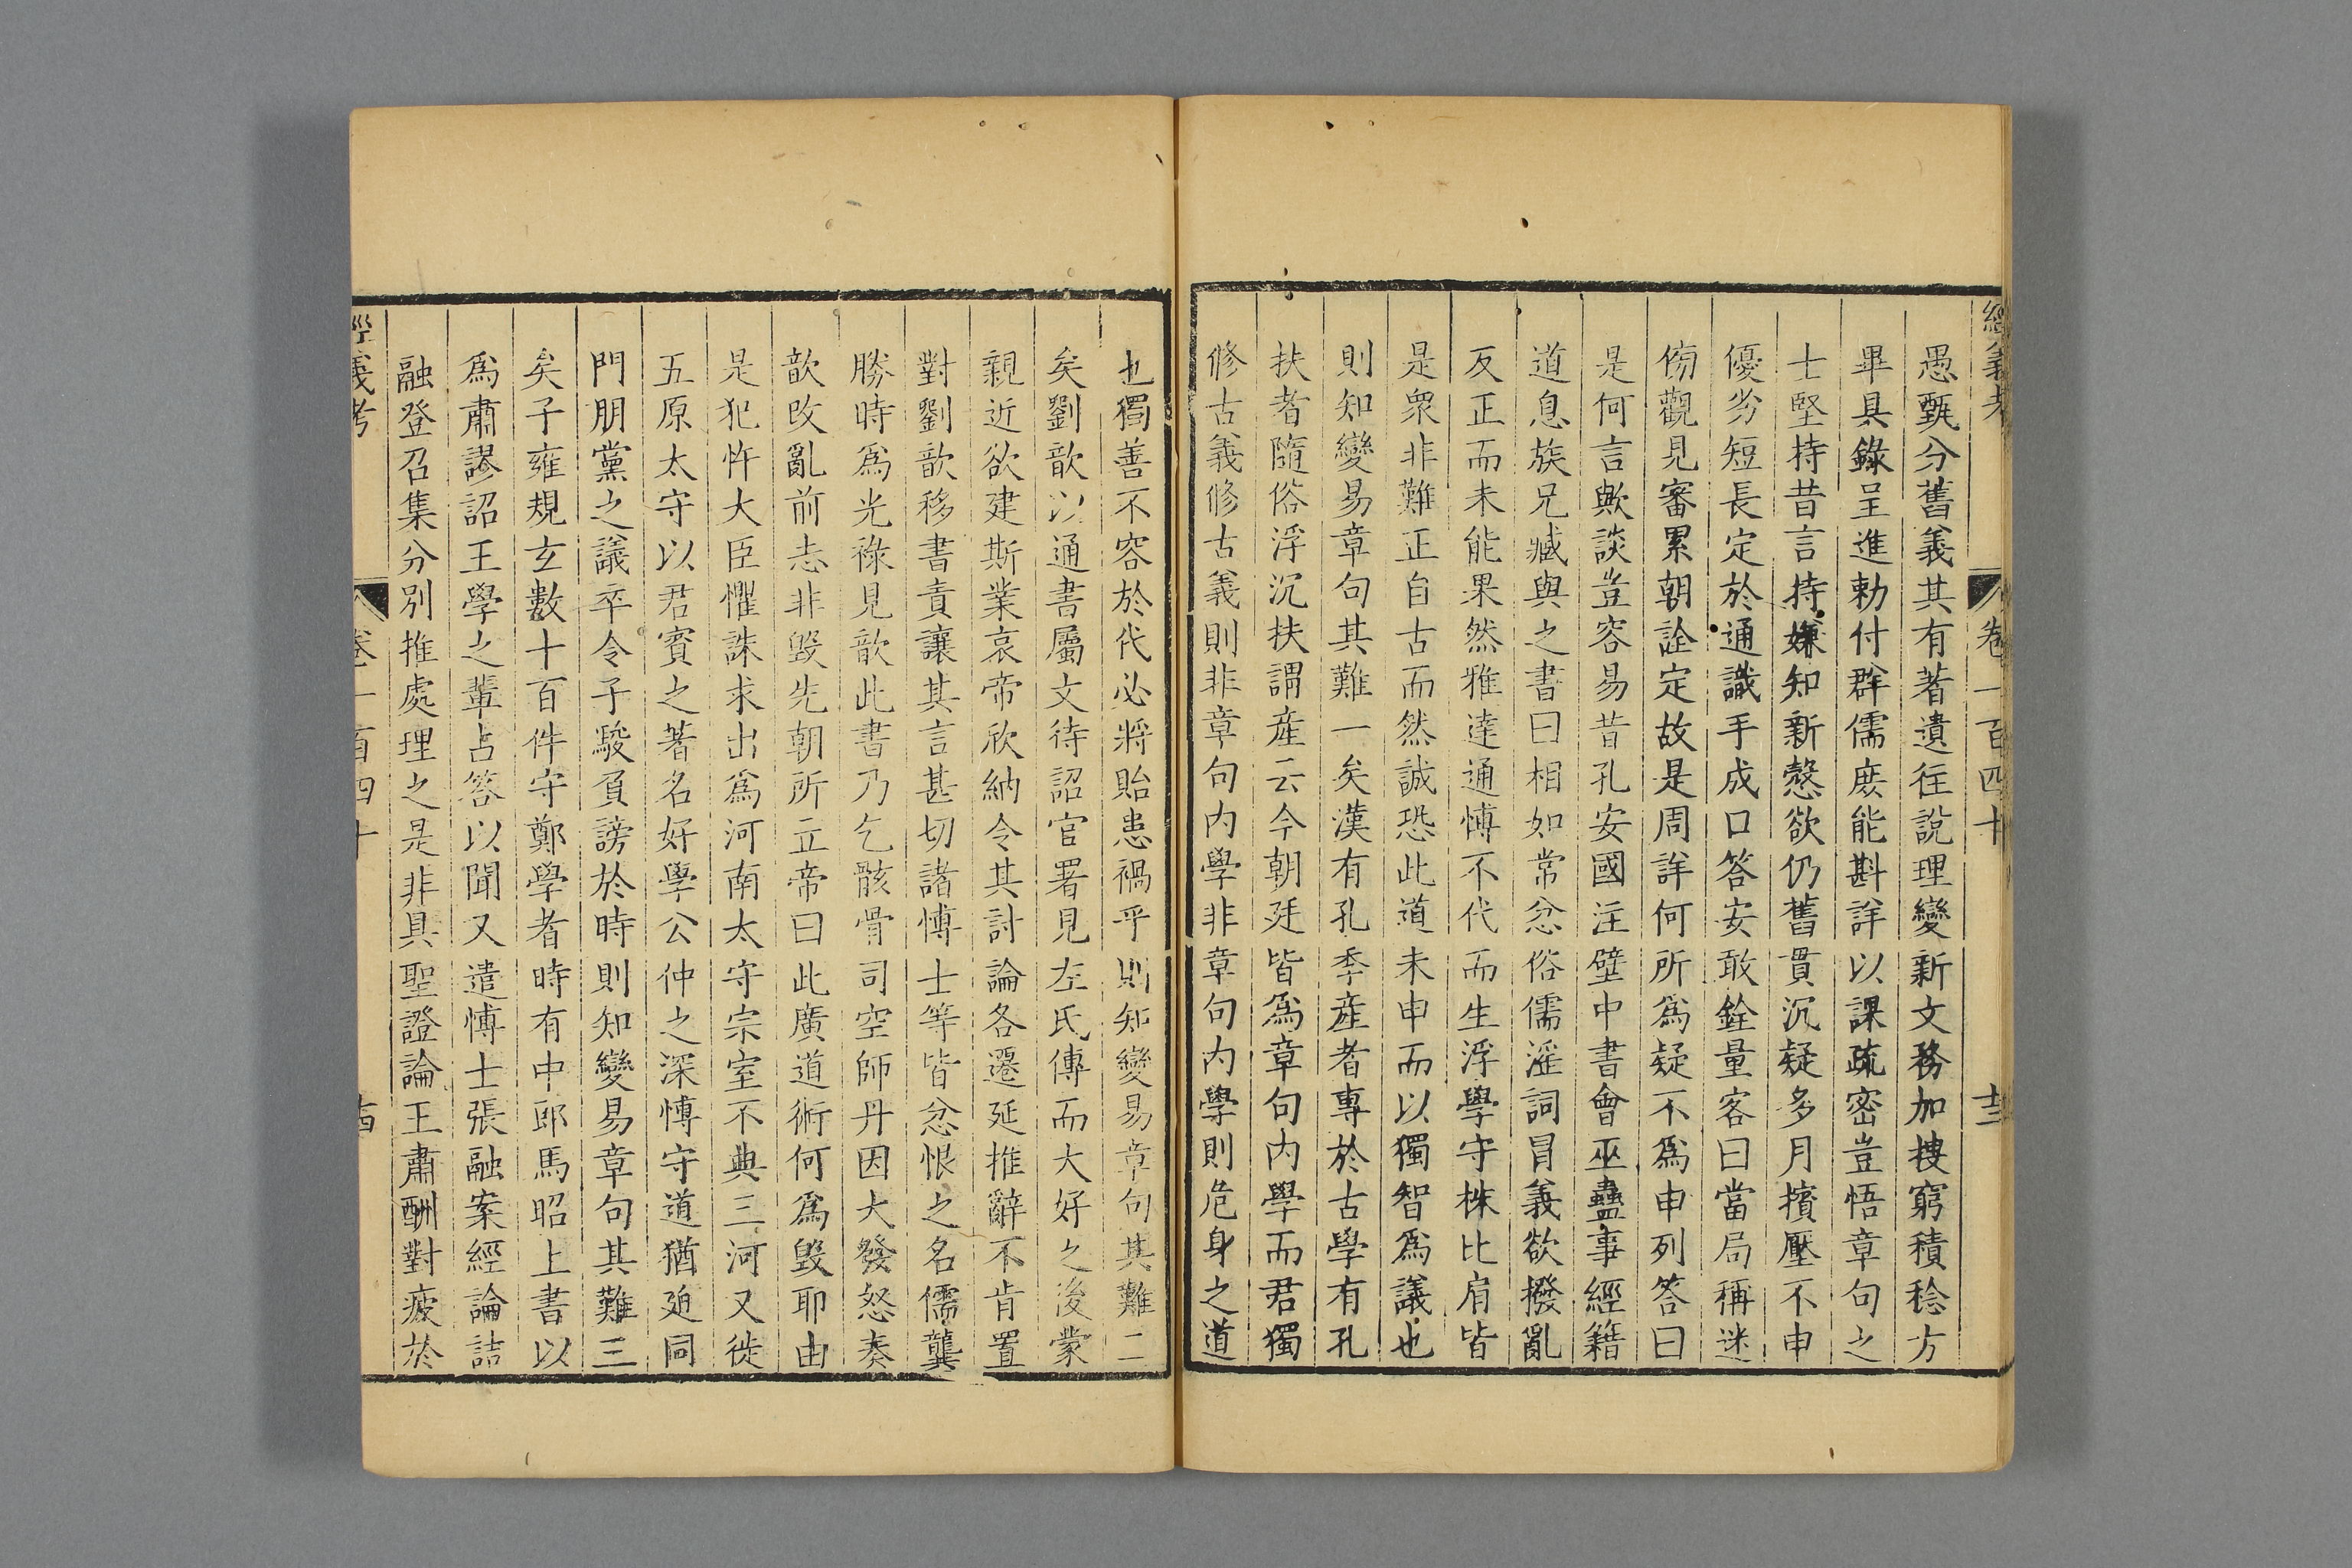 經義考 卷一百四十 十三
愚甄分舊義其有著遺往說理變新文務加搜窮積稔方
畢具錄呈進勅付群儒庶能斟詳以課疏密豈悟章句之
士堅持昔言持嫌知新慤欲仍舊貫沉疑多月擯壓不申
優劣短長定於通識手成口答安敢銓量客曰當局稱迷
傍觀見審累朝詮定故是周詳何所為疑不為申列答曰
是何言歟談豈容易昔孔安國注壁中書會巫蠱事經籍
道息族兄臧與之書曰相如常忿俗儒淫詞冒義欲撥亂
反正而未能果然雅達通博不代而生浮學守株比肩皆
是衆非難正自古而然誠恐此道未申而以獨智爲議也
則知變易章句其難一矣漢有孔季產者專於古學有孔
扶者隨俗浮沉扶謂產云今朝廷皆爲章句內學而君獨
修古義修古義則非章句內學非章句內學則危身之道
也獨善不容於代必將貽患禍乎則知變易章句其難二
矣劉歆以通書屬文待詔官署見左氏傳而大好之後蒙
親近欲建斯業哀帝欣納令其討論各遷延推辭不肯置
對劉歆移書責讓其言甚切諸博士等皆忿恨之名儒龔
勝時爲光祿見歆此書乃乞骸骨司空師丹因大發怒奏
歆改亂前志非毀先朝所立帝曰此廣道術何爲毀耶由
是犯忤大臣懼誅求出爲河南太守宗室不典三河又徙
五原太守以君賓之著名好學公仲之深博守道猶迫同
門朋黨之議卒令子駿負謗於時則知變易章句其難三
矣子雍規玄數十百件守鄭學者時有中郎馬昭上書以
爲肅謬詔王學之輩占答以聞又遣博士張融案經論詰
融登召集分別推處理之是非具聖證論王肅酬對疲於
經義考 卷一百四十 十四